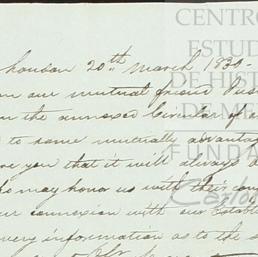 CENTRO
ESTUD
DE HIST
DE ME
FUNDA
Carlos
20th March 1830
our mutual friend
the annexed Circular of
to some mutually advanta
you that it will always
may honor us with their con
connexion with our Establ
very information as to the s